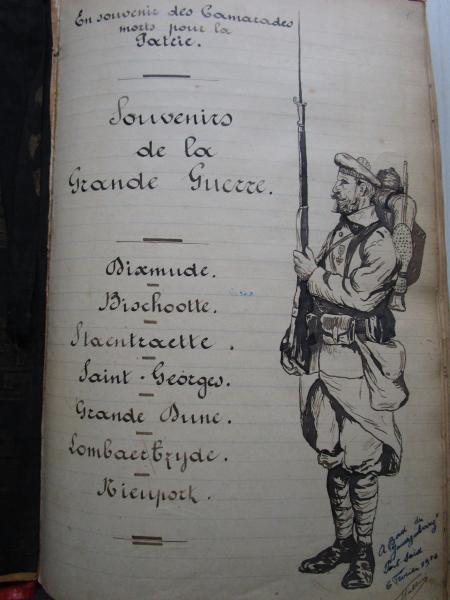 En souvenir des Camarades
morts pour la
Patrie.
Souvenirs
de la
Grande Guerre.
Dixmude.
Bischootte.
Staentraette.
Saint-Georges.
Grande Dune.
Lombaertzyde.
Nieuport.
A Bord du
Port Saïd
6 Février 1916